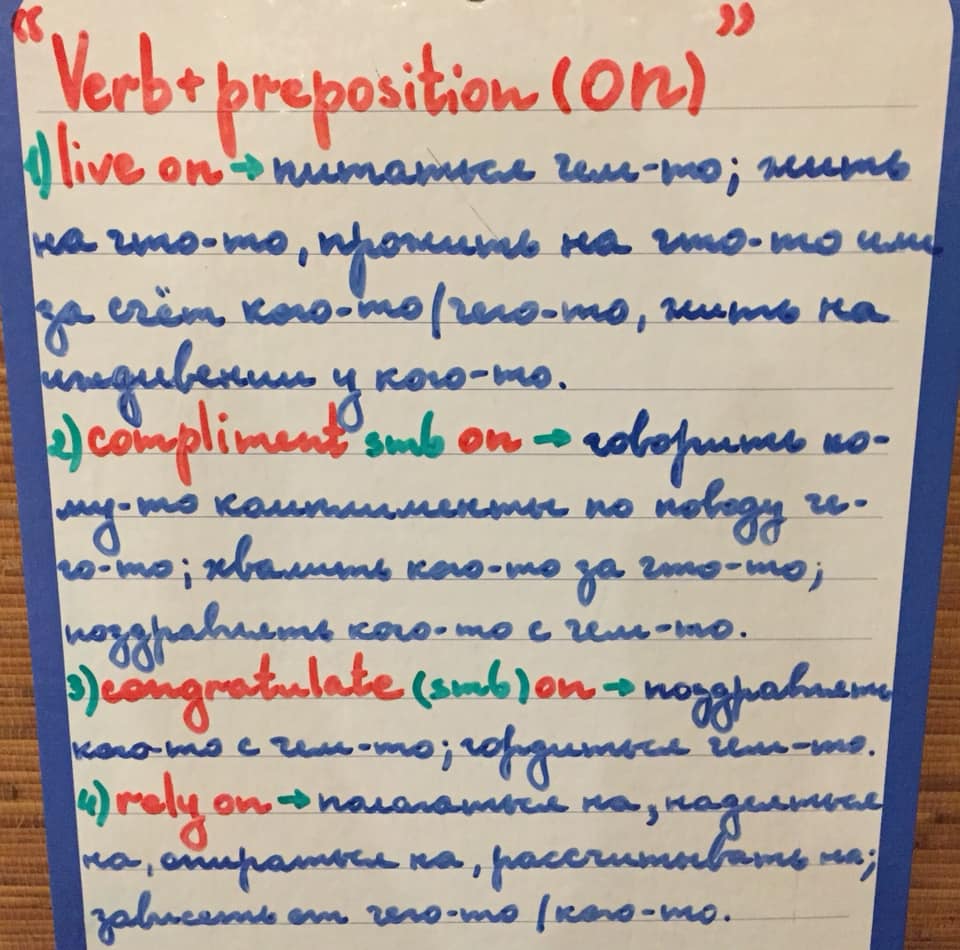 "Verb + preposition (on)"
1) live on → питаться чем-то; жить
на что-то, прожить на что-то или
за счёт кого-то/чего-то, жить на
иждивении у кого-то.
2) compliment smb on → говорить ко-
му-то комплименты по поводу че-
го-то; хвалить кого-то за что-то;
поздравлять кого-то с чем-то.
3) congratulate (smb) on → поздравлять
кого-то с чем-то; гордиться чем-то.
4) rely on → полагаться на, надеяться
на, опираться на, рассчитывать на;
зависеть от чего-то /кого-то.